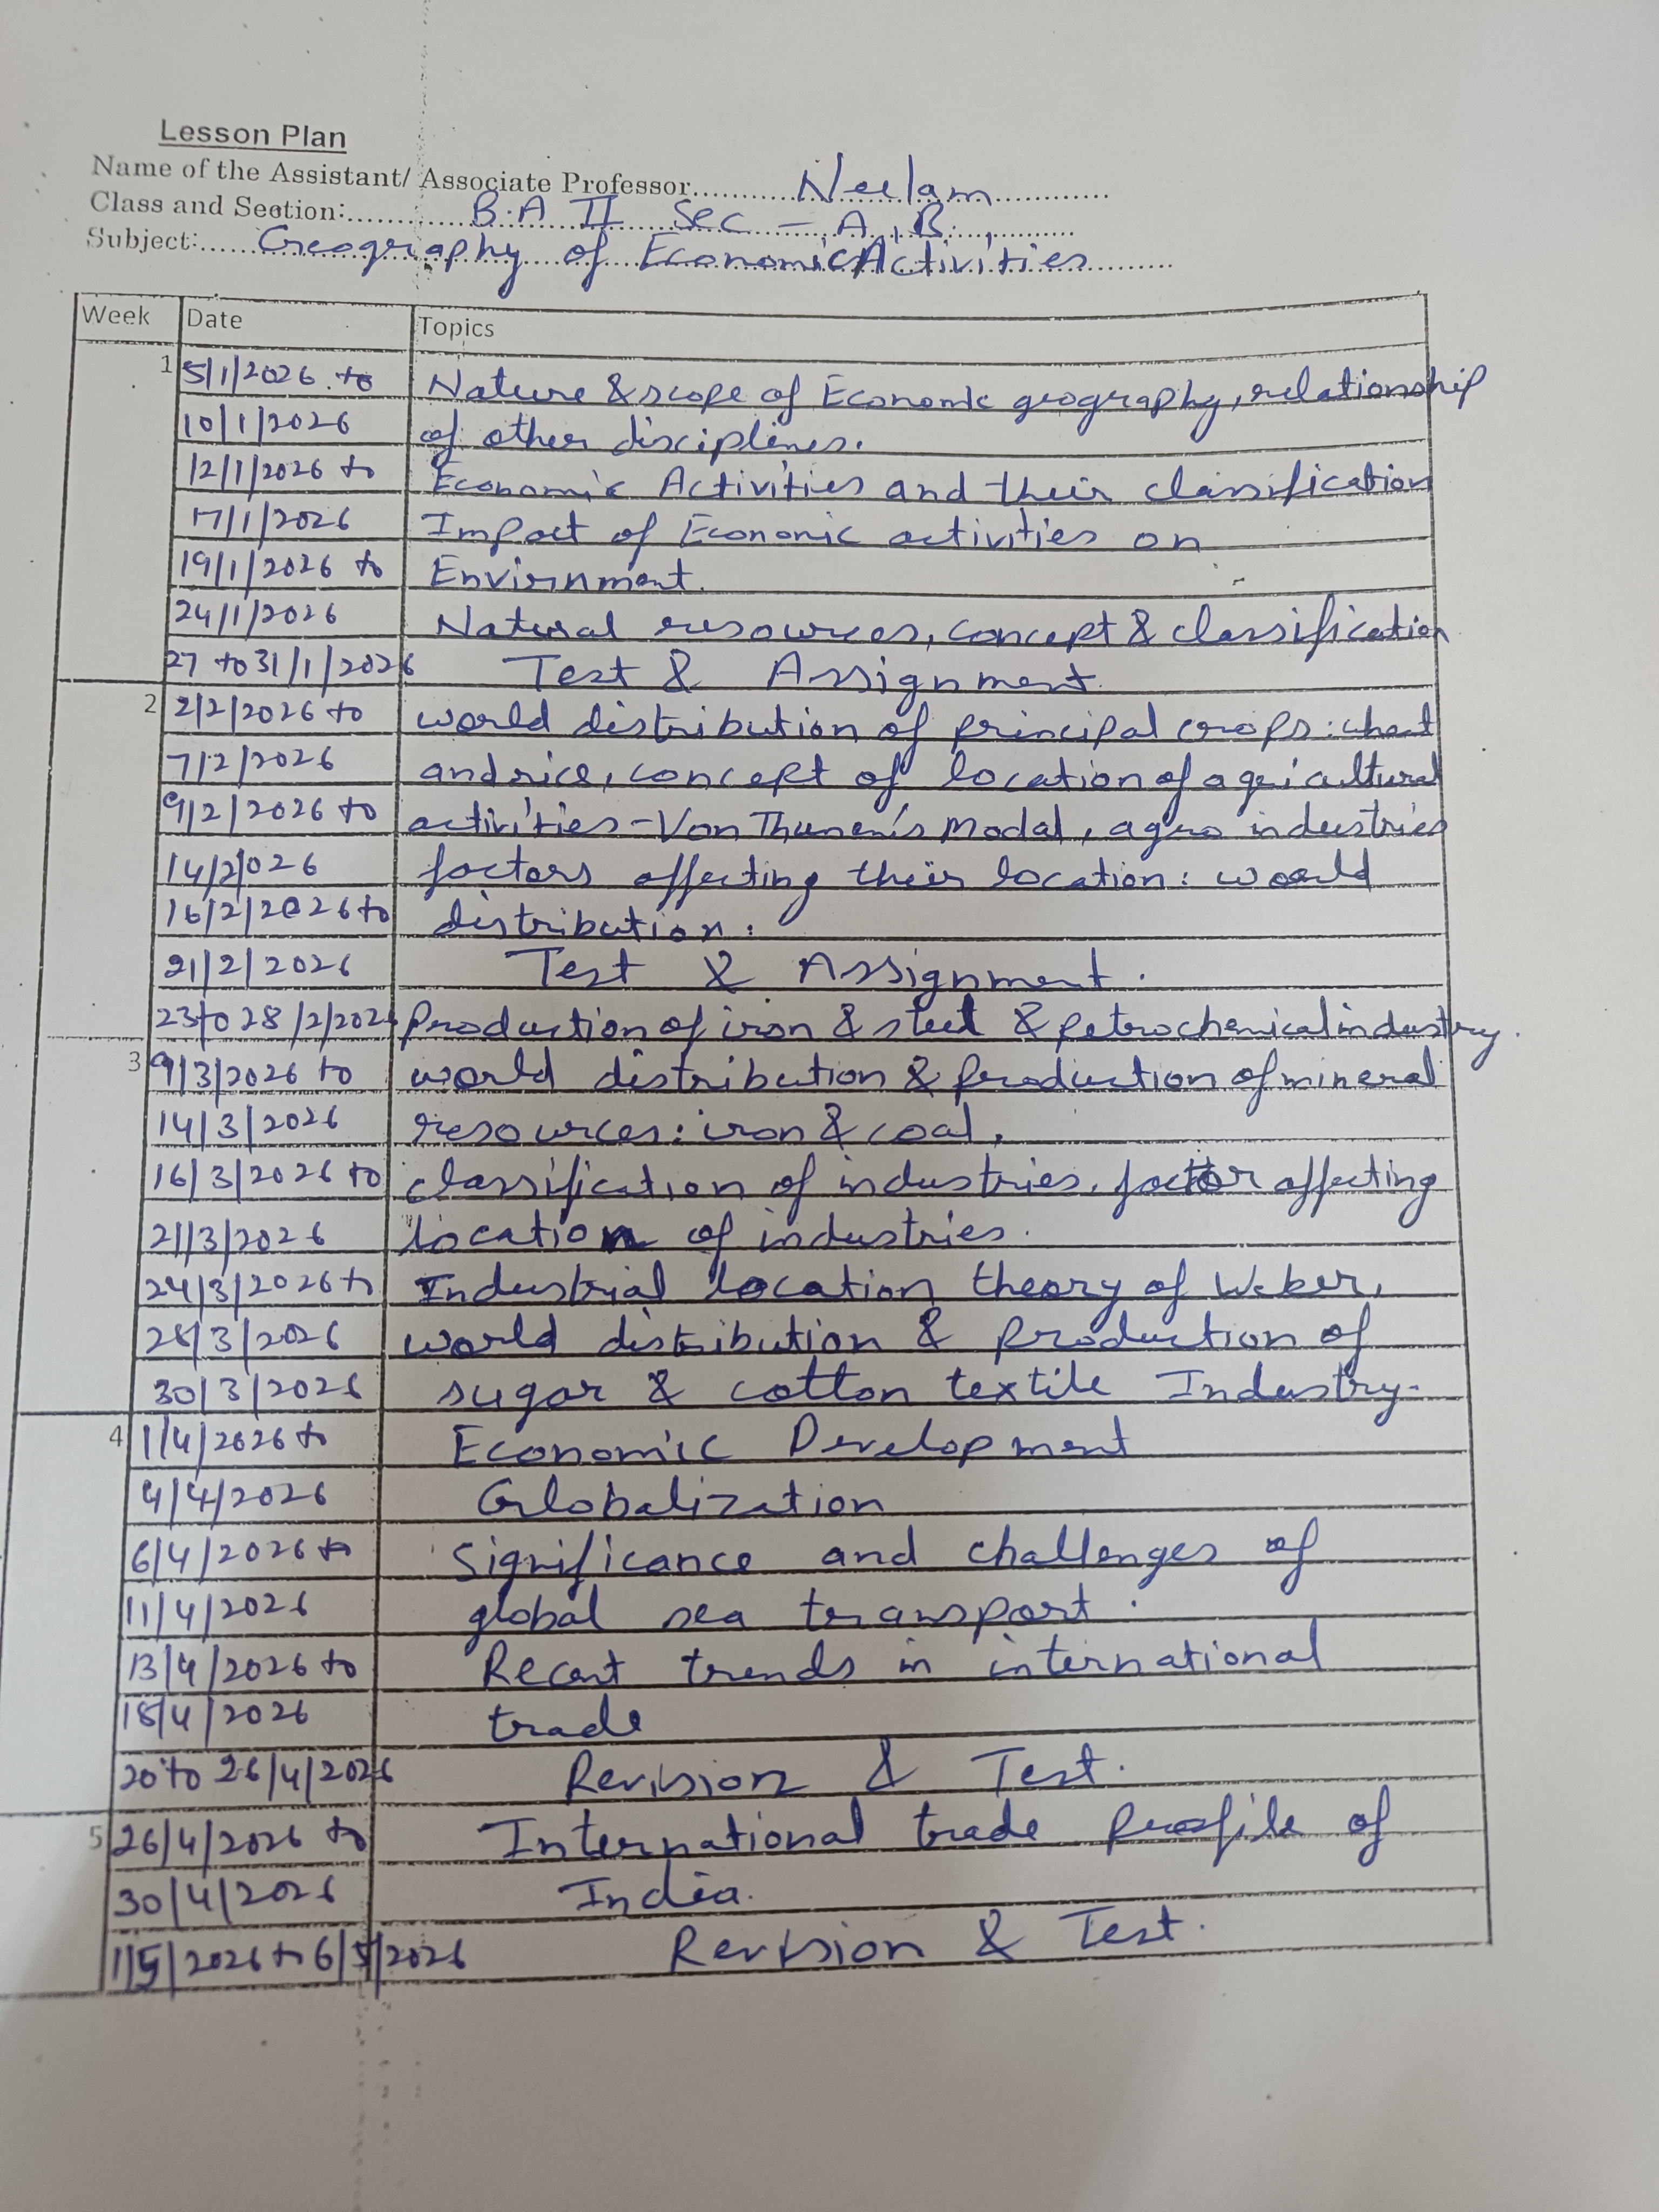 Lesson Plan
Name of the Assistant/ Associate Professor.......... Neelam ..............
Class and Section:............ B.A II Sec - A, B. , ..........
Subject:...... Geography of Economic Activities ..........
Week Date Topics
1 5/1/2026 to Nature & scope of Economic geography, relationship
10/1/2026 of other disciplines.
12/1/2026 to Economic Activities and their classification
17/1/2026 Impact of Economic activities on
19/1/2026 to Envirnment.
24/1/2026 Natural resources, concept & classification
27 to 31/1/2026 Test & Assignment.
2 2/2/2026 to world distribution of principal crops: wheat
7/2/2026 and rice, concept of location of agricultural
9/2/2026 to activities - Von Thunen's Modal, agro industries
14/2/026 factors affecting their location: world
16/2/2026 to distribution.
21/2/2026 Test & Assignment.
23 to 28/2/2026 Production of iron & steel & petrochemical industry.
3 9/3/2026 to world distribution & production of mineral
14/3/2026 resources: iron & coal,
16/3/2026 to classification of industries, factor affecting
21/3/2026 location of industries.
24/3/2026 to Industrial location theory of Weber,
28/3/2026 world distribution & production of
30/3/2026 sugar & cotton textile Industry.
4 1/4/2026 to Economic Development
4/4/2026 Globalization
6/4/2026 to Significance and challenges of
11/4/2026 global sea transport.
13/4/2026 to Recent trends in international
18/4/2026 trade
20 to 26/4/2026 Revision & Test.
5 26/4/2026 to International trade profile of
30/4/2026 India.
1/5/2026 to 6/5/2026 Revision & Test.